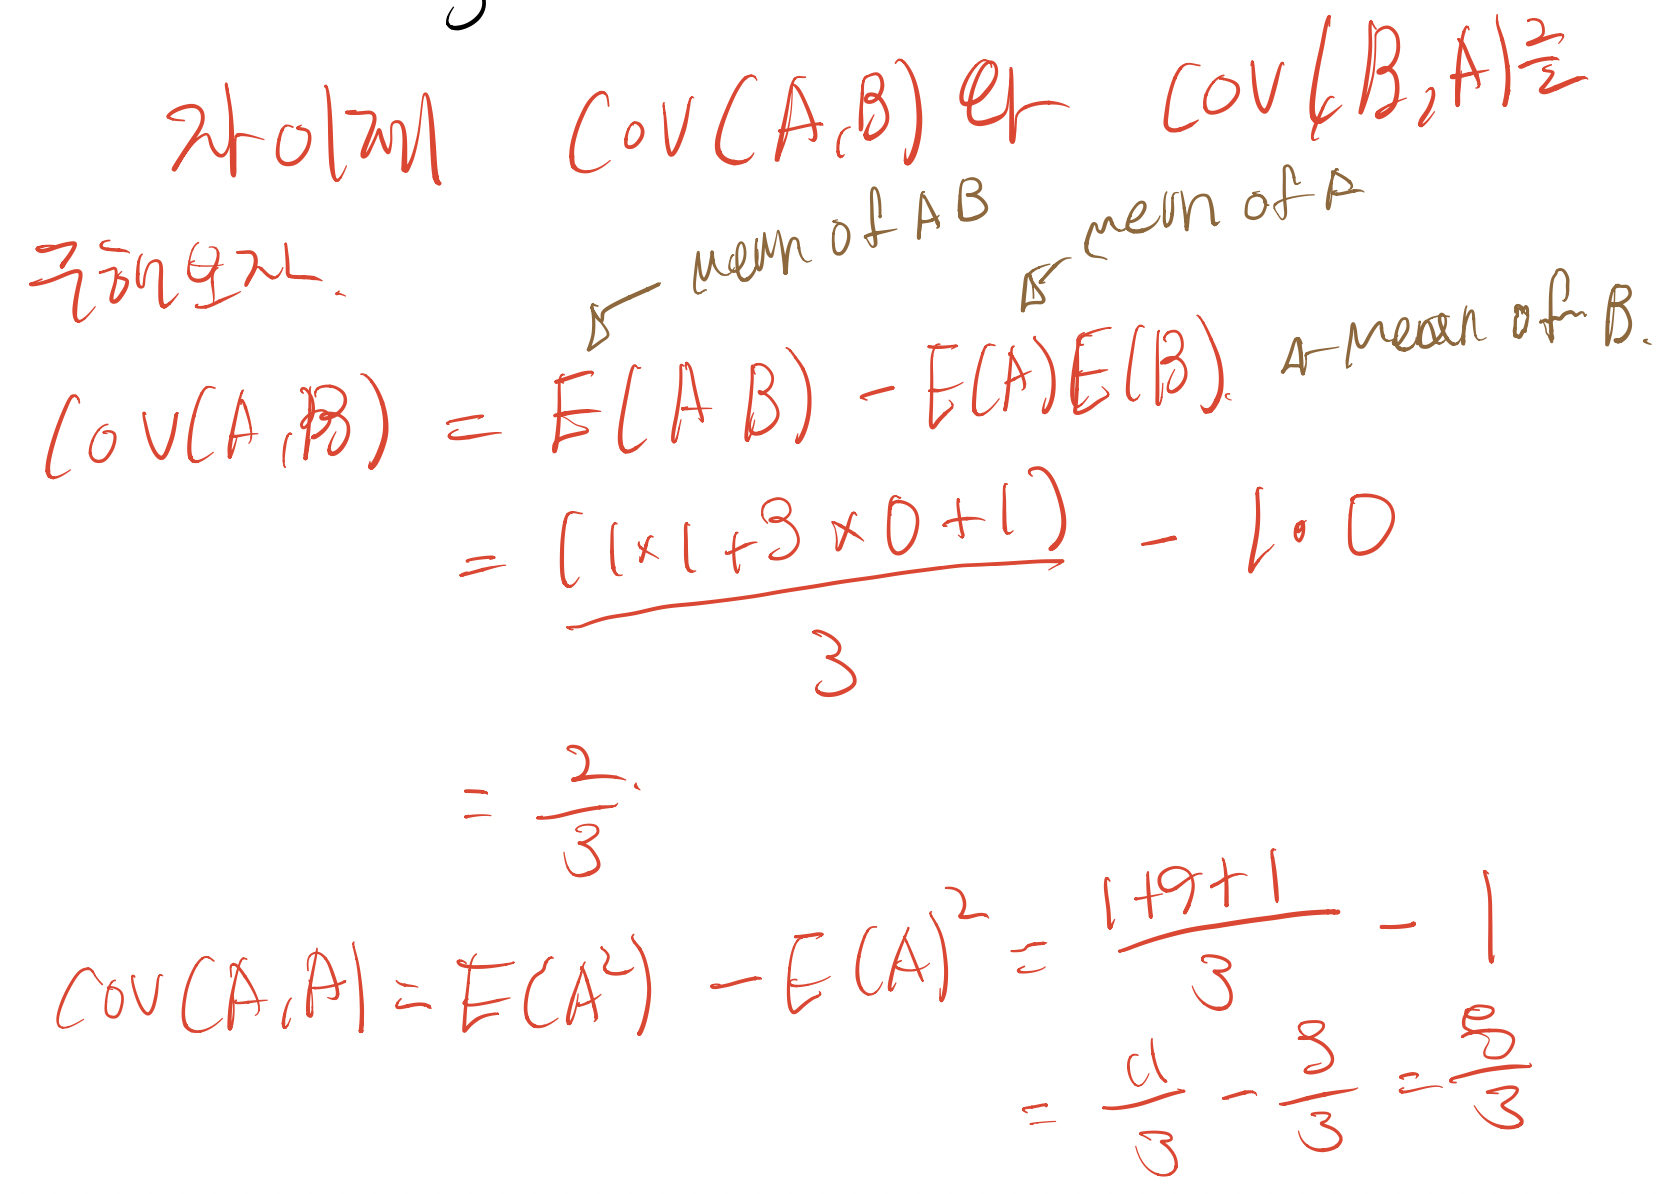 자 이제 COV(A,B) 와 COV(B,A)를
mean of AB
mean of A
구해보자.
COV(A,B) = E(AB) - E(A)E(B).
mean of B.
= (1×1+3×0+1)/3 - 1•0
= 2/3.
COV(A,A) = E(A²) - E(A)² = (1+9+1)/3 - 1
= 11/3 - 3/3 = 8/3